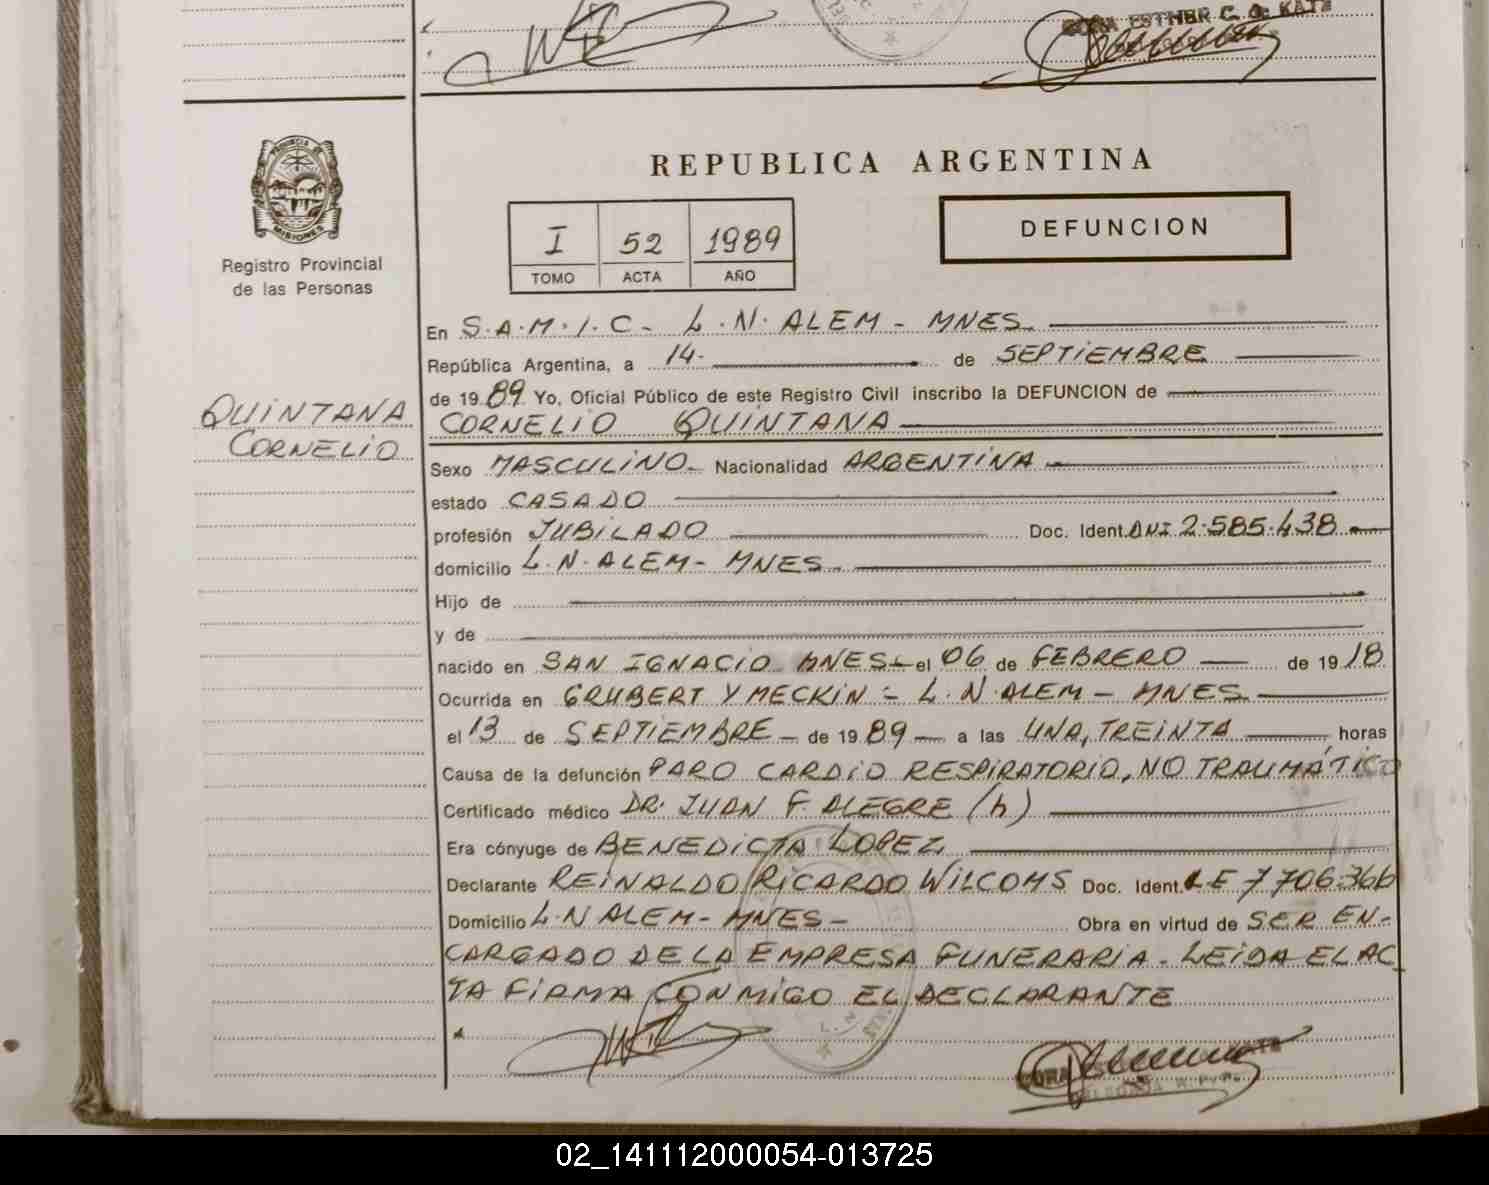 ESTHER C. de KATZ
REPUBLICA ARGENTINA
PROVINCIA DE
MISIONES
Registro Provincial
de las Personas
I 52 1989
TOMO ACTA AÑO
DEFUNCION
En S.A.M.I.C- L.N.ALEM - MNES.
República Argentina, a 14- de SEPTIEMBRE
de 1989 Yo, Oficial Público de este Registro Civil inscribo la DEFUNCION de
QUINTANA
CORNELIO
CORNELIO QUINTANA
Sexo MASCULINO- Nacionalidad ARGENTINA
estado CASADO
profesión JUBILADO Doc. Ident. DNI 2.585.438
domicilio L.N.ALEM- MNES.
Hijo de
y de
nacido en SAN IGNACIO MNES- el 06 de FEBRERO de 1918
Ocurrida en GRUBERT Y MECKIN = L.N.ALEM - MNES.
el 13 de SEPTIEMBRE - de 1989 - a las UNA, TREINTA horas
Causa de la defunción PARO CARDIO RESPIRATORIO, NO TRAUMÁTICO
Certificado médico DR. JUAN F. ALEGRE (h)
Era cónyuge de BENEDICTA LOPEZ
Declarante REINALDO RICARDO WILCOMS Doc. Ident. LE 7706366
Domicilio L.N ALEM- MNES- Obra en virtud de SER EN-
CARGADO DE LA EMPRESA FUNERARIA. LEIDA EL AC_
TA FIRMA CONMIGO EL DECLARANTE
02_141112000054-013725